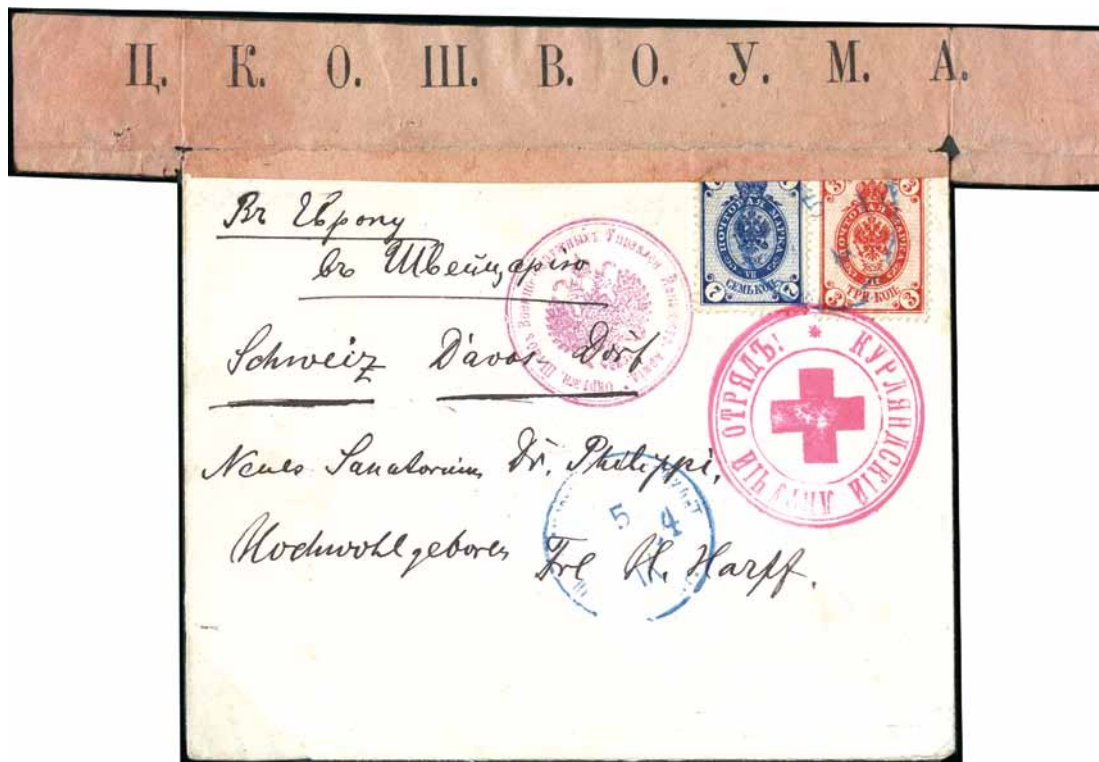 Ц. К. О. Ш. В. О. У. М. А.
Въ Европу
въ Швейцарію
Schweiz Davos-Dorf
Neues Sanatorium Dr. Philippi,
Hochwohlgeboren Frl H. Harff.
ПОЧТОВАЯ МАРКА
7 СЕМЬ КОП. 7
3 3
ПОЧТОВАЯ МАРКА
3 ТРИ КОП. 3
* КУРЛЯНДСКІЙ ОТРЯДЪ!
5 4